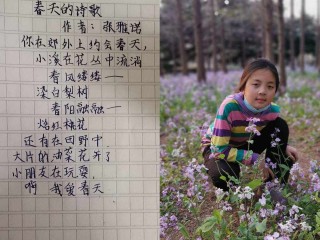 春天的诗歌
作者：张雅诺
你在郊外上约会春天，
小溪在花丛中流淌
春风缕缕——
染白梨树
春阳融融——
焰红桃花
还有在田野中
大片的油菜花开了
小朋友在玩耍
啊 我爱春天